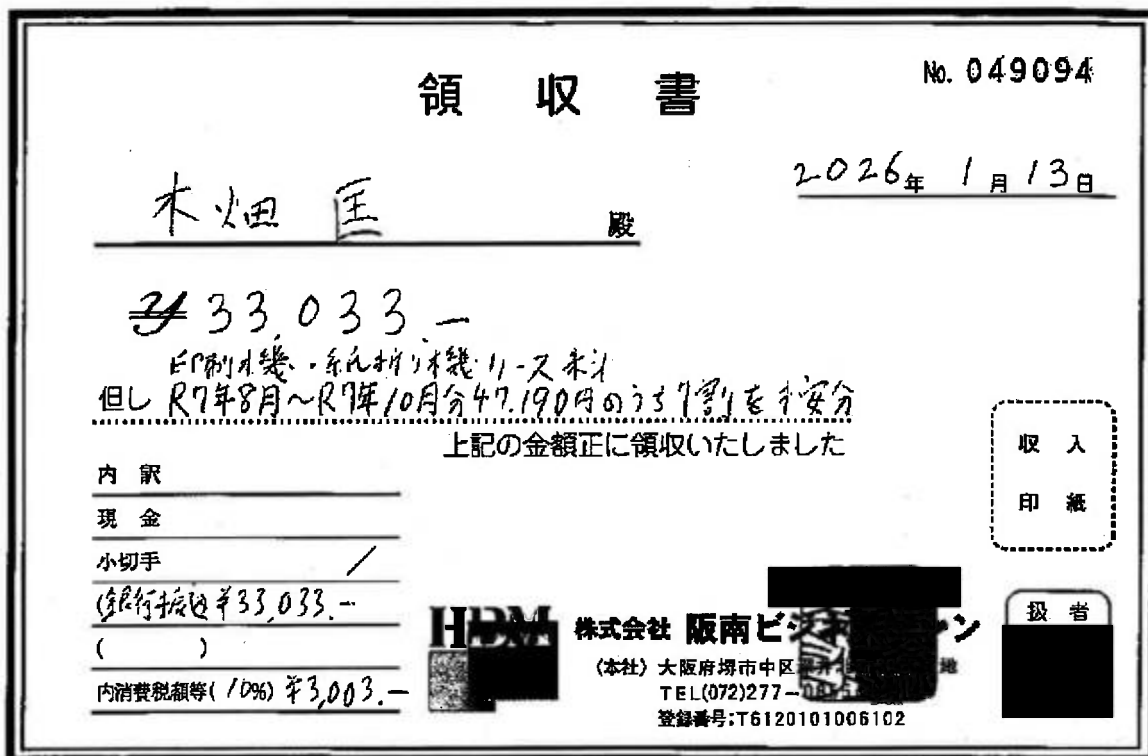 領収書
No. 049094
2026年 1月 13日
木畑 匡 殿
¥33,033.-
印刷機・紙折り機リース料
但し R7年8月〜R7年10月分47,190円のうち7割を按分
上記の金額正に領収いたしました
収入
印紙
内訳
現金
小切手
(銀行振込 ¥33,033.-
( )
内消費税額等(10%) ¥3,003.-
HBM
株式会社 阪南ビジネスマシン
(本社) 大阪府堺市中区
TEL(072)277-
登録番号:T6120101006102
扱者